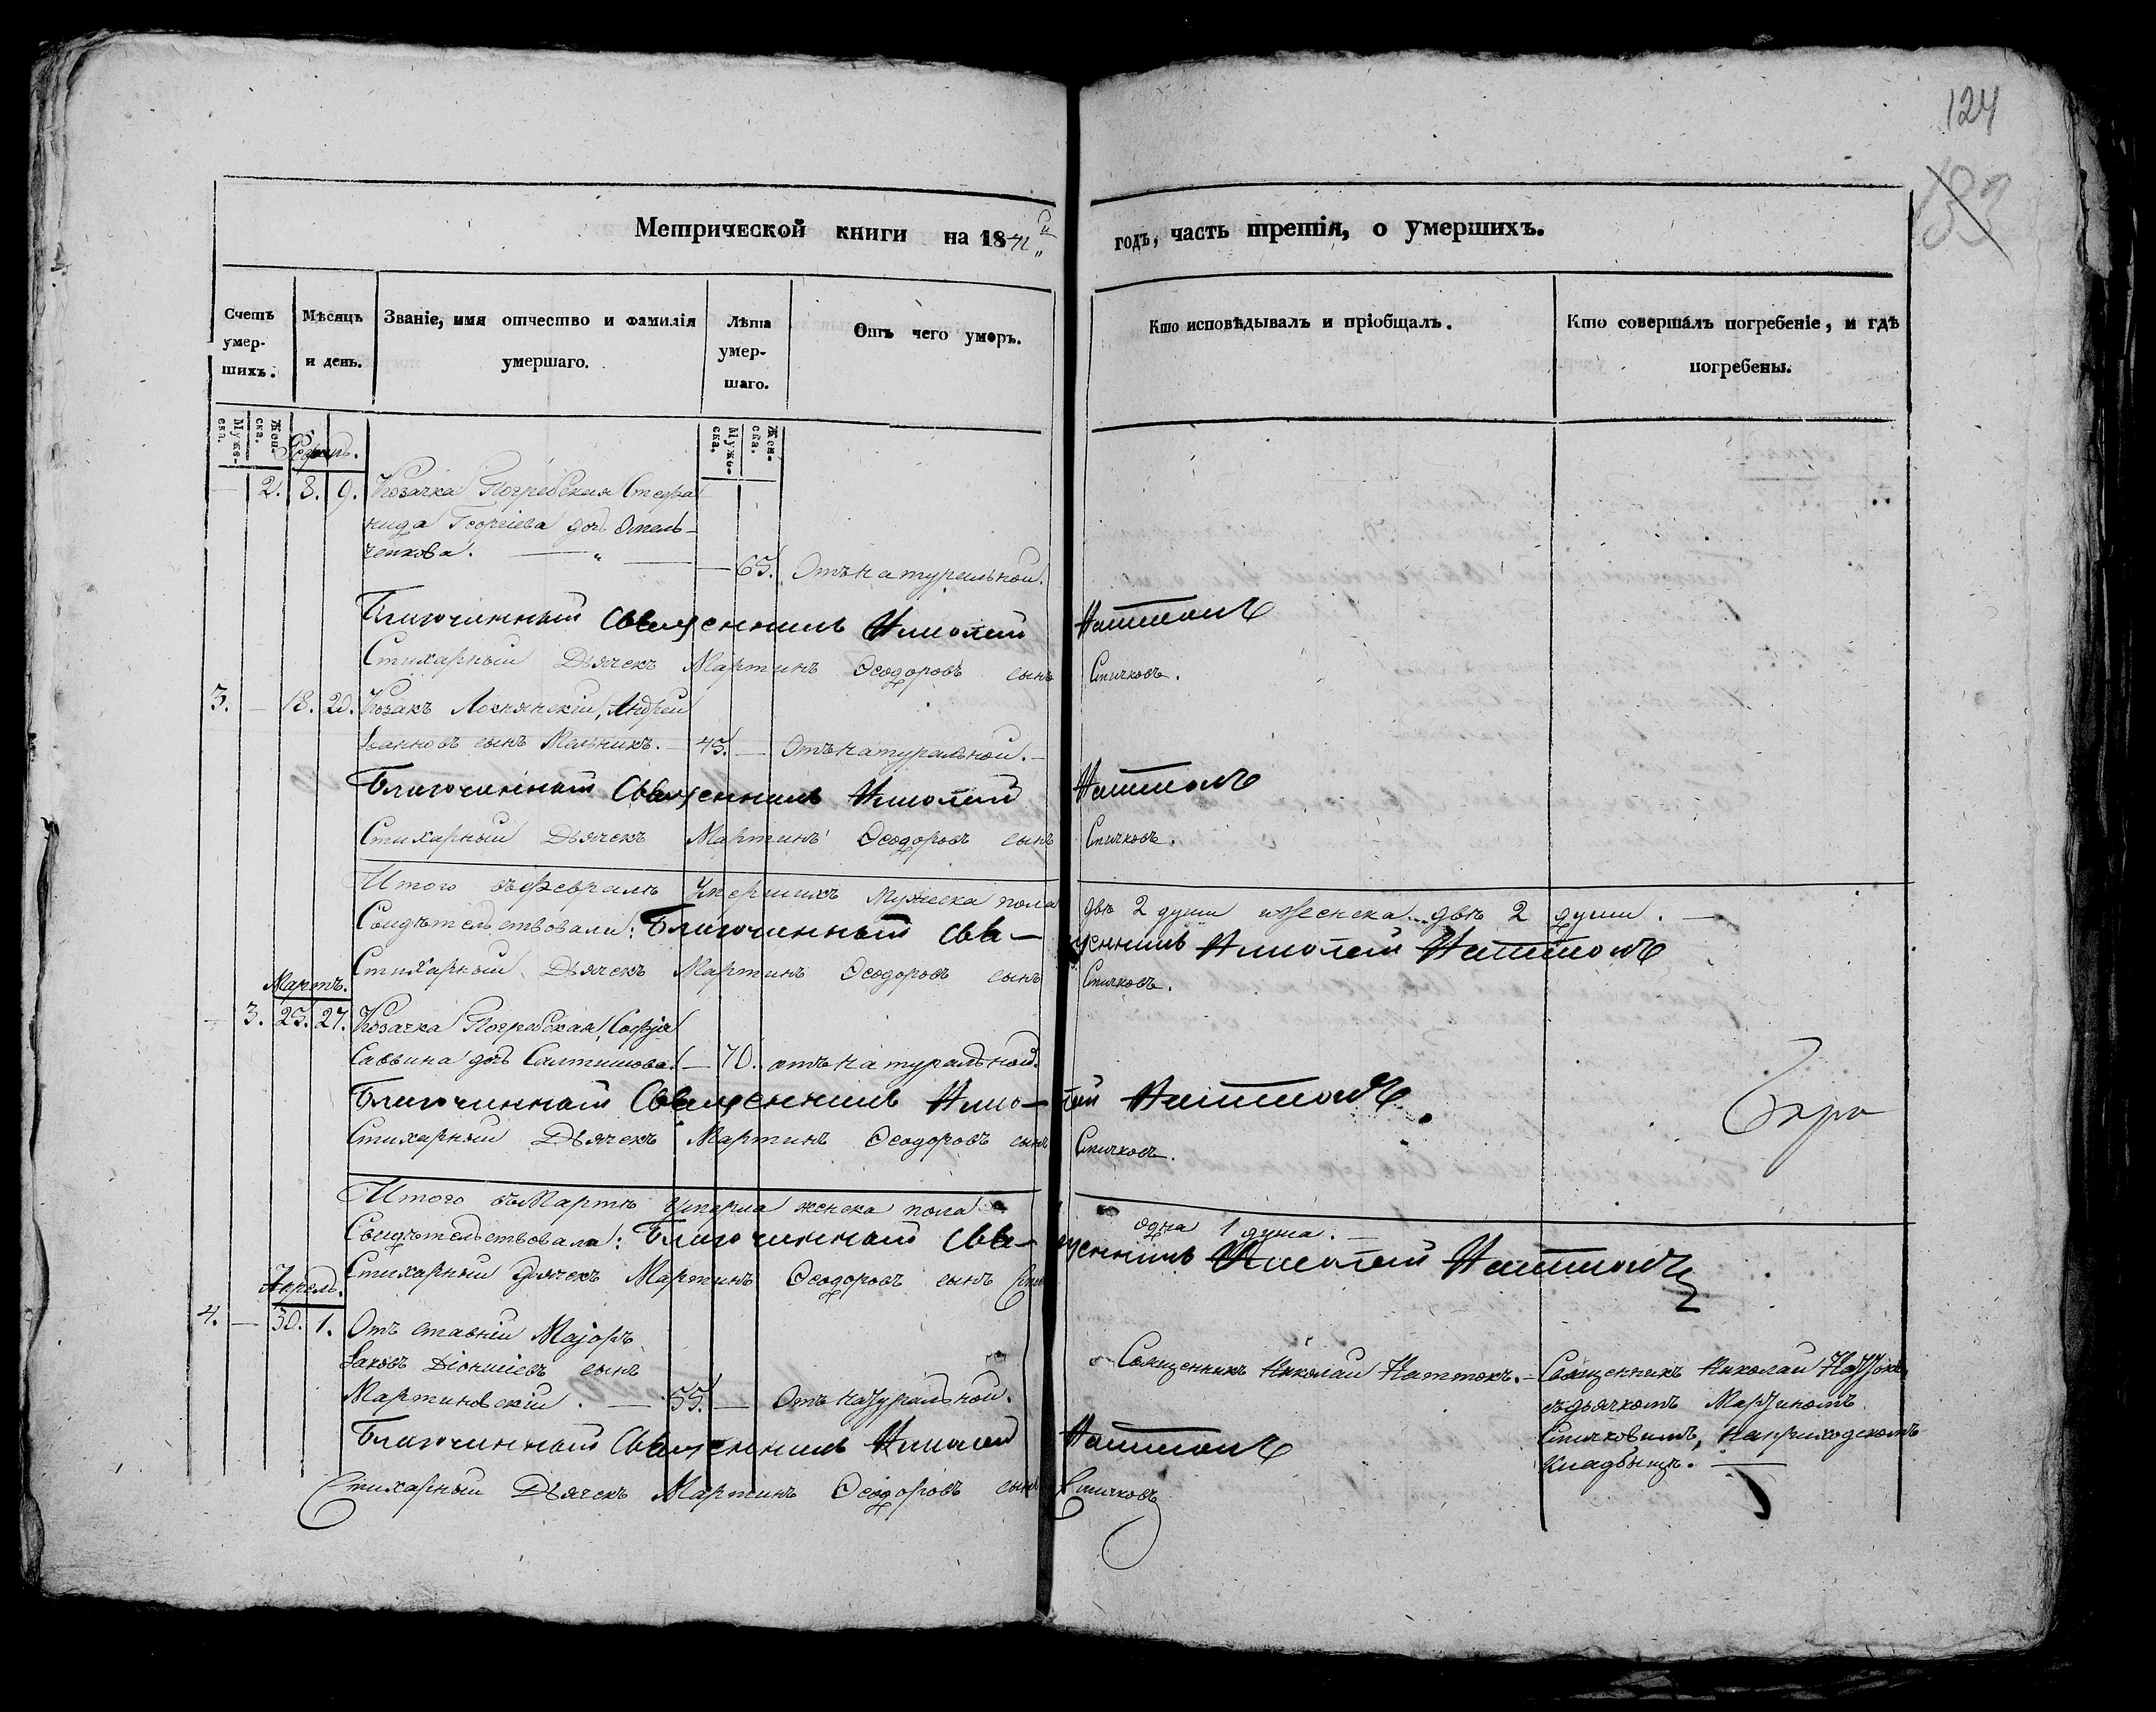 124
Метрической книги на 1841 годъ, часть третія, о умершихъ.
Счетъ умер-шихъ.
Мѣсяцъ и день.
Званіе, имя отчество и фамилія умершаго.
Лѣта умер-шаго.
Отъ чего умеръ.
Кто исповѣдывалъ и пріобщалъ.
Кто совершалъ погребеніе, и гдѣ погребены.
Мужс-ска. Жен-ска.
Мужс-ска. Жен-ска.
2. 8. 9. Козачка Погребская Стефа
нида Георгіева дочь Омель-
ченкова. — 65. Отъ натуральной.
Благочинный Священникъ Николай Наттокъ
Стихарный Дьячекъ Мартинъ Ѳеодоровъ сынъ Спичковъ.
3. — 18. 20. Козакъ Локнянскій, Андрей
Іванновъ сынъ Мельникъ. — 45. — Отъ натуральной. —
Благочинный Священникъ Николай Наттокъ
Стихарный Дьячекъ Мартинъ Ѳеодоровъ сынъ Спичковъ.
Итого въ Февралѣ умершихъ мужеска пола двѣ 2 души женска двѣ 2 души. —
Свидѣтельствовали: Благочинный Свя-щенникъ Николай Наттокъ
Стихарный Дьячекъ Мартинъ Ѳеодоровъ сынъ Спичковъ.
Мартъ.
— 3. 25. 27. Козачка Погребская, Софія
Саввина дочь — 70. отъ натуральной.
Благочинный Священникъ Нико-лай Наттокъ.
Стихарный Дьячекъ Мартинъ Ѳеодоровъ сынъ Спичковъ.
Итого въ Мартѣ умерла женска пола одна 1 душа. —
Свидѣтельствовали: Благочинный Свя-щенникъ Николай Наттокъ
Стихарный Дьячекъ Мартинъ Ѳеодоровъ сынъ
Апрель.
4. — 30. 1. Отъ ставній Маіоръ
Іаковъ Діонисіевъ сынъ
Мартиновскій. — 55. — Отъ натуральной.
Священникъ Николай Наттокъ. —
Священникъ Николай Наттокъ
съ дьячкомъ Мартиномъ
Спичковымъ, на приходскомъ
кладбищѣ. —
Благочинный Священникъ Николай Наттокъ
Стихарный Дьячекъ Мартинъ Ѳеодоровъ сынъ Спичковъ